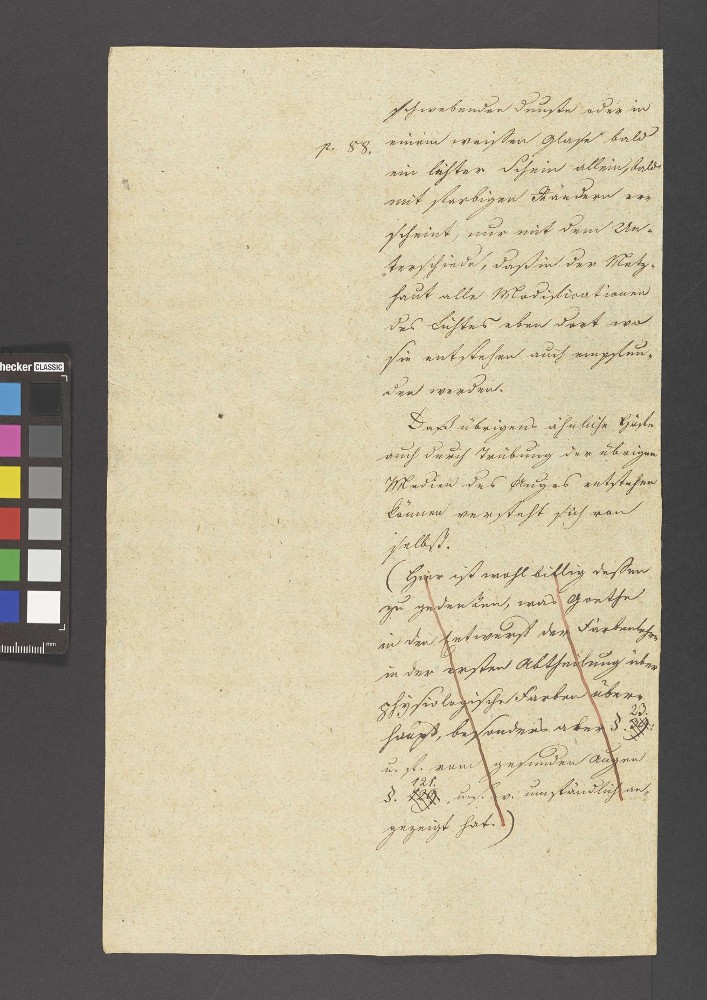 schwebenden Dunste oder in
p. 88. einem weissen Glase bald
ein lichter Schein allein, bald
mit farbigen Rändern er-
scheint, nur mit dem Un-
terschiede, daß in der Netz-
haut alle Modificationen
des Lichtes eben dort wo
sie entstehen auch empfun-
den werden.
Daß übrigens ähnliche Höfe
auch durch Trübung der übrigen
Medien des Auges entstehen
können versteht sich von
selbst.
(Hier ist wohl billig dessen
zu gedenken, was Goethe
in den Entwurf der Farbenlehre
in der ersten Abtheilung über
physiologische Farben über-
haupt, besonders aber §. 23.
u. f. vom gesunden Augen
§. 121. u. s. w. umständlich an-
gezeigt hat.)
checker CLASSIC
mm